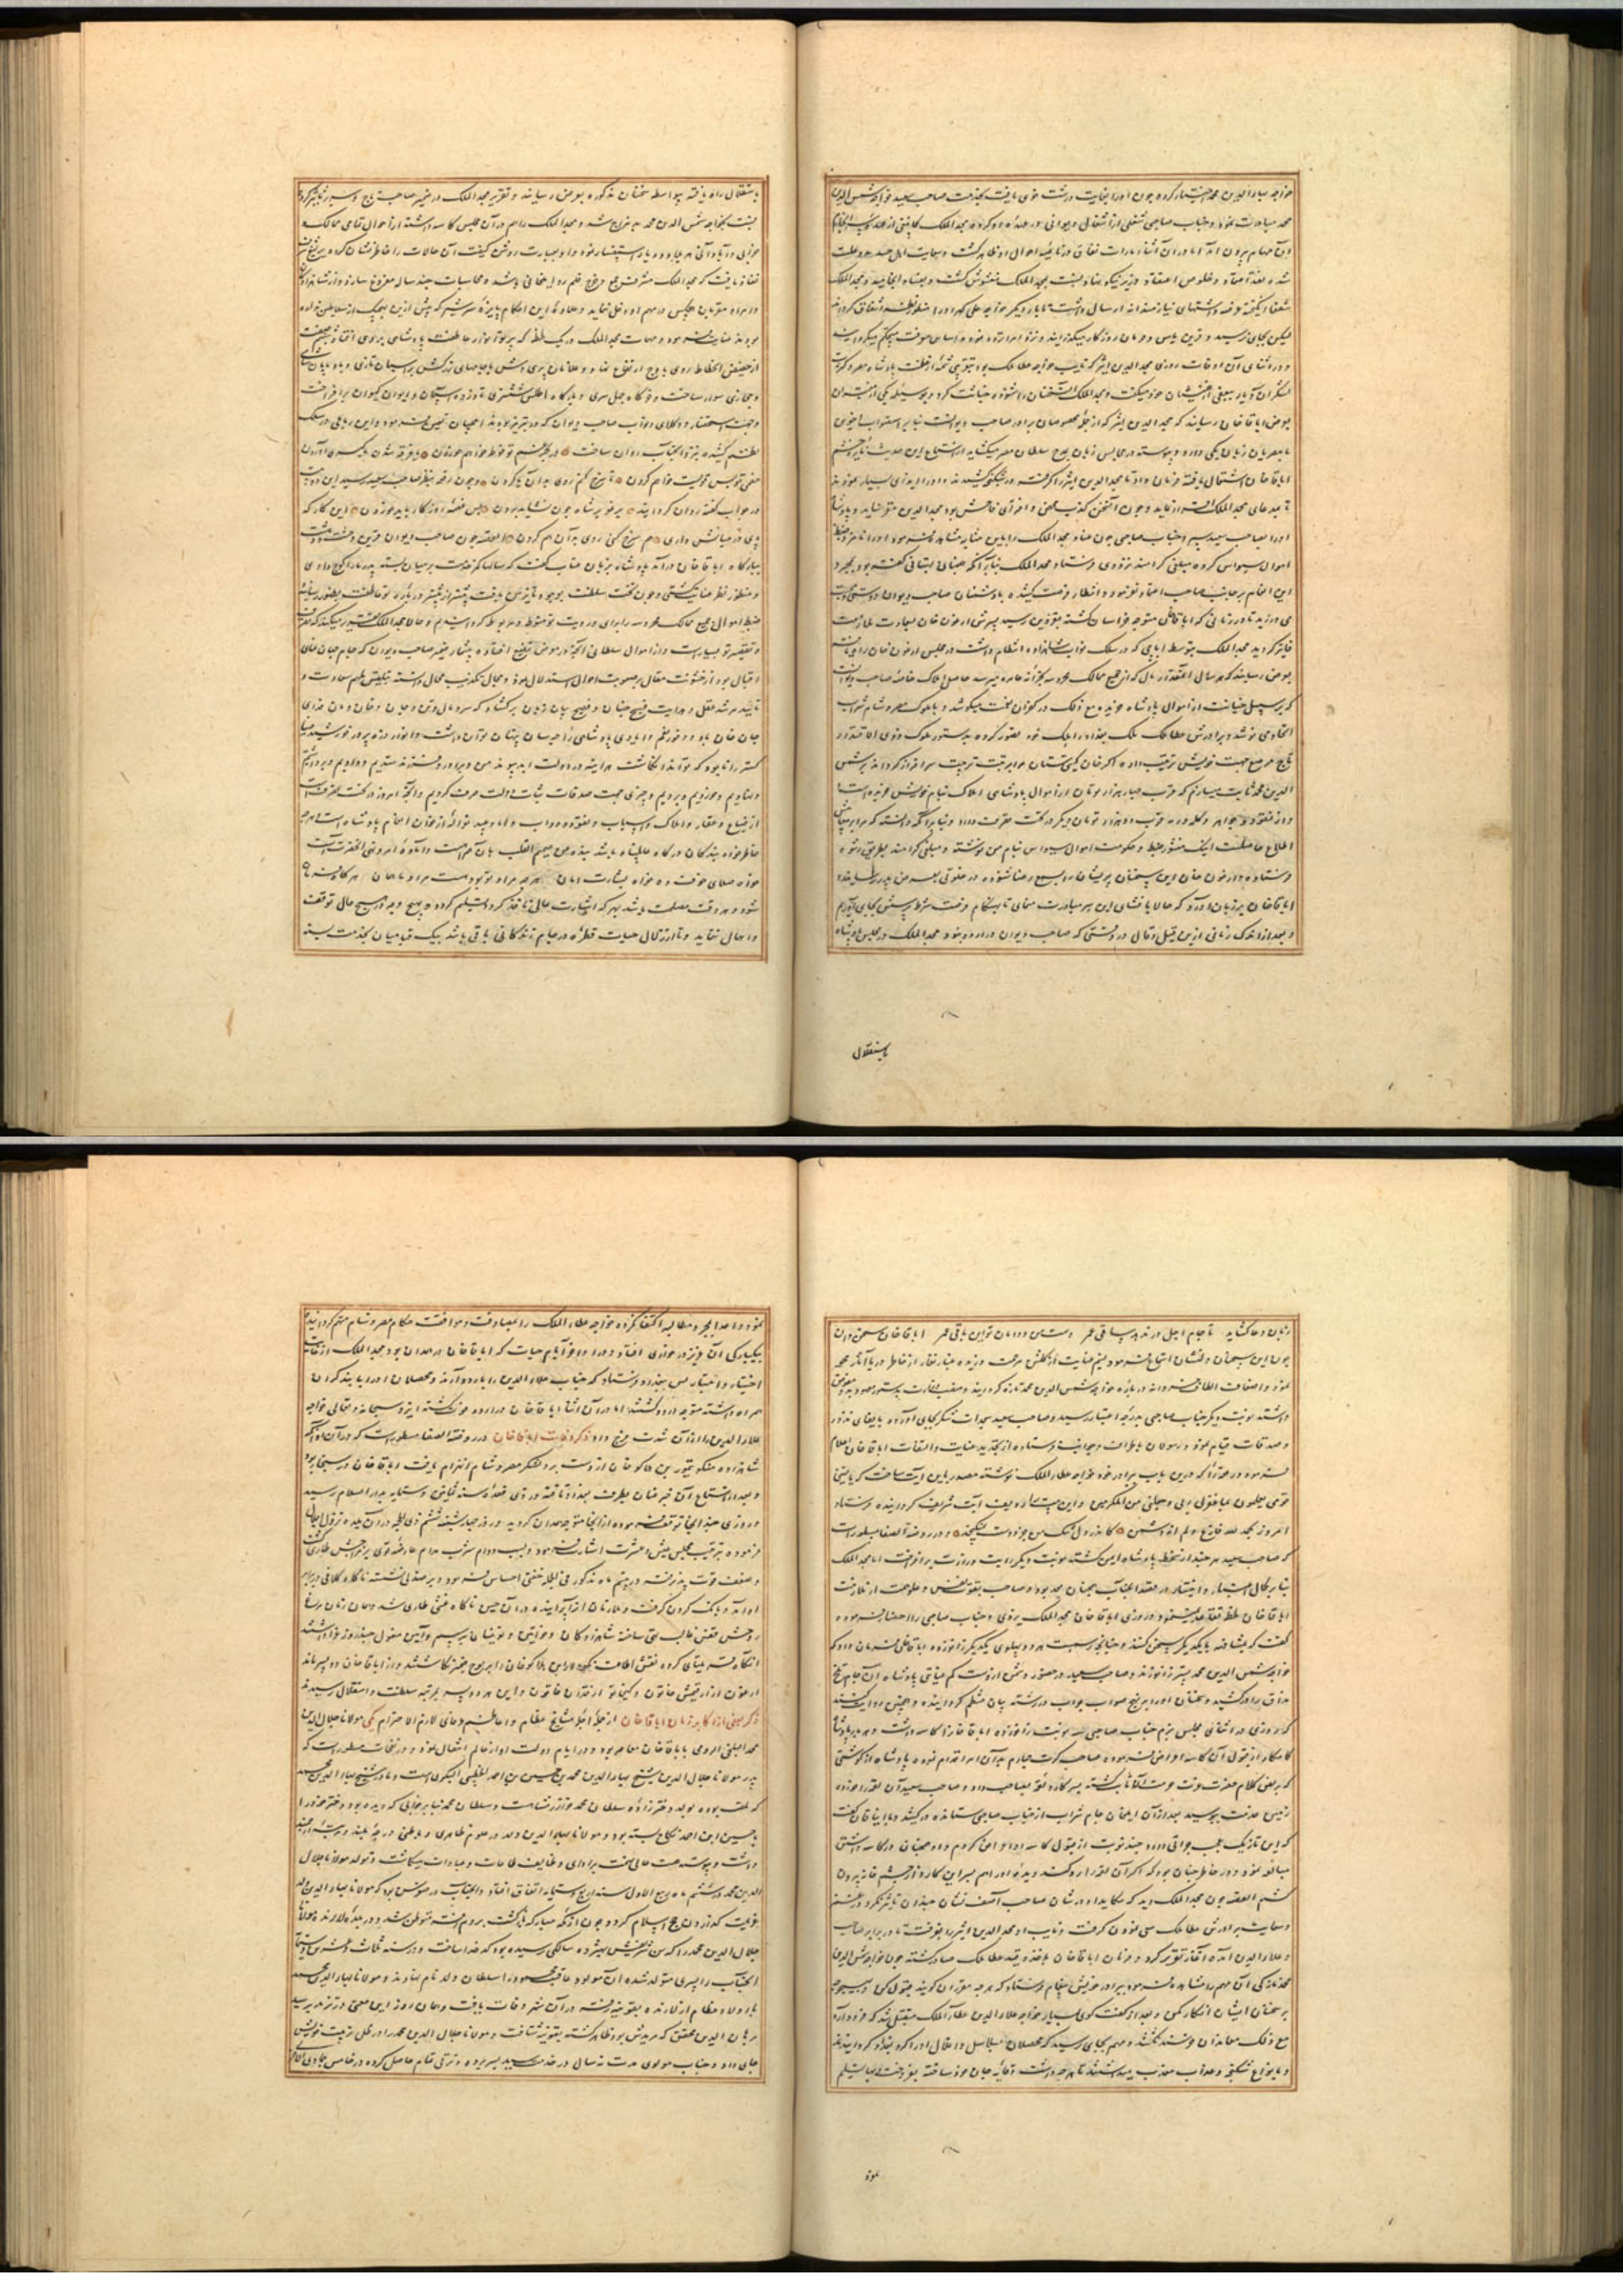 خواجه بهاء الدین محمد اختیار کرده چون او را بغایت درشت خوی یافت بخدمت صاحب سعید خواجه شمس الدین
محمد مبادرت نمود و جناب صاحبی شغلی از اشغال دیوانی در عهده او کرده مجد الملک کما ینبغی از عهده
آن مهام بیرون آمد اما در آن اثنا امارات نفاق و ظاهر گشت
شده بعد از
شفعا برانگیخته
لیکن بجای نرسید و قرین یاس و حرمان روزگار میگذرانید
و در اثنای آن اوقات روزی مجد الدین اثیر که نایب خواجه عطا ملک بود
لشکر آن دیار ببعضی از خویشان خود میگفت و مجد الملک آن سخنان را شنوده خیانت کرد و بوسیله یکی از
بعرض اباقا خان رسانید که مجد الدین اثیر که از جمله مخصوصان برادر صاحب دیوانست
با مصریان زبان یکی دارد و پیوسته در مجالس زبان بمدح سلطان مصر میگشاید از استماع این حدیث نایره خشم
اباقا خان اشتعال یافته فرمان داد تا مجد الدین اثیر را گرفته در شکنجه کشیدند و او را ایذای بسیار نمودند
تا بمدعای مجد الملک اعتراف نماید و چون آن سخن کذب محض و افترای فاحش بود مجد الدین مقر نیامد و پادشاه
او را بصاحب سعید سپرد و جناب صاحبی چون عناد مجد الملک را باین مثابه مشاهده فرمود او را نامزد ضبط
اموال سیواس کرده مبلغی گرامند نزد وی فرستاد و مجد الملک بنا بر آنکه بهتانی گفته بود
این انعام بر جانب صاحب اعتماد ننمود و انتظار فرصت کشیده با دشمنان صاحب دیوان دوستی
می ورزید تا در زمانی که اباقا خان متوجه خراسان گشته بقزوین رسید پسرش ارغون خان بسعادت ملازمت
فایز گردید مجد الملک بتوسط اباچی که در سلک نواب شاهزاده انتظام داشت در مجلس ارغون خان راه یافت
بعرض رسانید که هر سال آنقدر مال که از جمیع ممالک محروسه بخزانه عامره میرسد حاصل املاک خاصه صاحب دیوانست
که بر سبیل خیانت از اموال پادشاه خریده مع ذلک در کفران نعمت میکوشد و با ملوک مصر و شام شراب
اتحاد می نوشد و برادرش عطا ملک ملک بغداد را ملک خود تصور کرده بدستور ملوک ذوی الاقتدار
تاج مرصع جهت خویش ترتیب داده اگر خان گیتی ستان مرا بمرتبت تربیت سرافراز گرداند بر شمس
الدین محمد ثابت میسازم که قرب چهار هزار تومان از اموال پادشاهی املاک بنام خویش خریده است
و از نقود و جواهر و گله و رمه قریب دو هزار تومان دیگر در تحت تصرف دارد و بنابر آنکه دانسته که مرا بر
اطلاع حاصلست اینک منشور ضبط و حکومت اموال سیواس بنام من نوشته و مبلغی گرامند بطریق رشوه
فرستاده و ارغون خان این سخنان پریشان را بسمع رضا شنوده در خلوتی بعرض پدر رسانید
اباقا خان بر زبان آورد که حالا بافشای این سر مبادرت منمای تا بهنگام فرصت شرط پرسش بجای آوریم
و بعد از اندک زمانی از این قیل و قال در وقتی که صاحب دیوان در اردو نبود مجد الملک در مجلس پادشاه
باستقلال
باستقلال راه یافته بیواسطه سخنان مذکوره بعرض رسانید و تقریر مجد الملک در ضمیر صاحب تاج و سریر تاثیر کرده
نسبت بخواجه شمس الدین محمد بد مزاج شد و مجد الملک را هم در آن مجلس کاسه داشته از احوال تمامی ممالک و
خرابی و آبادانی هر بلاد و دیار استفسار نمود
نفاذ یافت که مجد الملک مشرف جمع و خرج قلمرو ایلخانی باشد و محاسبات چند ساله مفروغ سازد
و امرا و مقربان هیچکس در مهم او دخل ننماید
بودند عنایت فرمود و مهمات مجد الملک در یک لحظه که پرتو انوار عاطفت پادشاهی بر وی افتاد
از حضیض انحطاط روی باوج ارتفاع نهاد و غلامان پری وش با جامهای زرکش بر اسپان تازی
و حجازی سوار ساخت و خرگاه چهل سری و بارگاه اطلس ششتری تا ذروه آسمان و ایوان کیوان برافراخت
و جهت استحضار وکلا و نواب صاحب دیوان که در تبریز بودند ایلچیان تعیین فرمود و این رباعی در سلک
نظم کشیده نزد آنجناب روان ساخت در بحر غم تو غوطه خواهم خوردن یا غرقه شدن یا گهری آوردن
خصمی تو بس قویست خواهم کردن یا سرخ کنم روی بدان یا گردن و چون رقعه بنظر صاحب سعید رسید این دو بیت
در جواب گفته روان گردانید یرغو بر شاه چون نشاید بردن بس غصه روزگار باید خوردن این کار که
پای در میانش داری هم سرخ کنی روی بدان هم گردن القصه چون صاحب دیوان قرین دهشت و وحشت
ببارگاه اباقا خان در آمد پادشاه بزبان عتاب گفت که سالها کمر خدمت بر میان بسته پدر مرا کوچ دادی
و منظور نظر عنایت گشتی و چون تخت سلطنت بوجود ما تزیین یافت پیشتر از پیشتر درباره تو عاطفت بظهور رسانیده
ضبط اموال جمیع ممالک محروسه را برای و رویت تو منوط و مربوط گردانیدیم و حالا مجد الملک تقریر میکند که
و تقصیر تو بسیارست و از اموال سلطانی آنچه در موضع تضییع افتاده بیشمار ضمیر صاحب دیوان که جام جهان نمای
اقبال بود از خشونت مقال بر صعوبت احوال استدلال نمود و مجال تکذیب محال دانسته بتلقین ملهم سعادت و
تایید مرشد عقل و هدایت فسیح جنان و فصیح بیان زبان برگشاد که سر و مال و تن و جان و خان و مان فدای
جان خان باد و خوض نعم و ایادی پادشاهی را احسان پنهان نتوان داشت و انوار ذره پرور خورشید ضیا
گستر را نابود کی توان انگاشت هر آینه در دولت ابد پیوند من و برادر و فرزند ستدیم و دادیم و برداشتیم
و نهادیم و خوردیم و بردیم و چیزی جهت صدقات ثبات دولت صرف کردیم و آنچه امروز در تحت تصرف است
از ضیاع و عقار و املاک و اسباب و نقود و دواب و اماء و عبید نواله از خوان انعام پادشاه است هرچه
خاطرخواه بندگان درگاه عالم پناه باشد بنده من صمیم القلب بآن همراهست و آماده امر و نهی آنحضرتست
خواه صلای خوف ده خواه بشارت امان هرچه مراد تو بود هست مراد ما همان هرگاه فرمان
شود و هر وقت مصلحت باشد بهر که اشارت عالی نفاذ گردد تسلیم کرده بهیچ وجه در هیچ حال توقف
و اهمال ننماید و تا از زلال حیات قطره در جام زندگانی باقی باشد بیک قبا میان بخدمت بسته
زبان دعا گشاید تا جام اجل در ندهد ساقی عمر دست من و دامان تو این باقی عمر اباقا خان سخن دان
چون این سخنان دلنشان استماع فرمود نسیم عنایت از گلشن مرحمت وزیده غبار نقار از خاطر دریا آثار محو
نمود و اصناف الطاف خسروانه درباره خواجه شمس الدین محمد تازه گردانید و منصب وزارت بدستور معهود بدو مفوض
داشته نوبت دیگر جناب صاحبی بدرجه اعتبار رسید و صاحب سعید سجدات شکر بجای آورده بایفای نذور
و صدقات قیام نمود و رسولان باطراف و جوانب فرستاده از تجدید عنایت و التفات اباقا خان اعلام
فرمود و در مکتوبی که درین باب ببرادر خود خواجه عطا ملک نوشته مصدر باین آیت ساخت که یا لیت
قومی یعلمون بما غفر لی ربی و جعلنی من المکرمین و این بیت را ردیف آیت شریف گردانیده فرستاد
امروز بحمد الله فارغ دلم از دشمن کاندر دل تنگ من جز دوست نمیگنجد و در روضة الصفا مسطورست
که صاحب سعید هر چند از سخط پادشاه ایمن گشته نوبت دیگر رایت وزارت برافراخت اما مجد الملک
بنابر کمال استظهار در قصد آنجناب همچنان بجد بود و صاحب بقوت نفس و علو همت از ملازمت
اباقا خان لحظه تقاعد نمینمود و روزی اباقا خان مجد الملک یزدی و جناب صاحبی را احضار فرموده
گفت که بمشافهه با یکدیگر سخن کنند و چنانچه رسمست هر دو پهلوی یکدیگر زانو زدند و اباقا خان فرمان داد که
خواجه شمس الدین محمد پیشتر زانو زند و صاحب سعید در حضور دشمن از دست کم عنایتی پادشاه آن جام تلخ
مذاق را در کشید و سخنان او را بر نهج صواب جواب در رشته بیان منتظم گردانیده و همچنین روایت کنند
که روزی در اثنای مجلس بزم جناب صاحبی سه نوبت زانو زده اباقا خان را کاسه داشت و هر بار پادشاه
کامکار از قبول آن کاسه اعراض فرموده صاحب کرت چهارم بدان امر اقدام نموده پادشاه از گوشتی
که ببعضی کلام حضرت عزت حرمت آن ثابت گشته بسر کارد لقمه بصاحب داد و صاحب سعید آن لقمه را خورده
زمین خدمت ببوسید بعد از آن ایلخان جام شراب از جناب صاحبی ستانده در کشید و با ایناقان گفت
که این تازیک عجب جراتی دارد چند نوبت از قبول کاسه او اعراض کردم و او همچنان در کاسه داشتن
مبالغه نمود و در خاطر چنان بود که اگر آن لقمه را رد کند دیده او را هم بسر این کارد از چشم خانه بیرون
کشم القصه چون مجد الملک دید که مکاید او در شان صاحب آصف نشان چندان تاثیر نکرد در غمز
و سعایت برادرش عطا ملک سعی نمودن گرفت و نایب او مجد الدین اثیر را بفریفت تا در برابر صاحب
و علاء الدین آمده آغاز تقریر کرد و فرمان اباقا خان باخذ و قید عطا ملک صادر گشته چون خواجه شمس الدین
محمد نازکی آن مهم را مشاهده فرمود ببرادر خویش پیغام فرستاد که هرچه مقرران گویند قبول کن و بهیچ وجه
بر سخنان ایشان انکار مکن و بعد از گفت و گوی بسیار خواجه علاء الدین عطا ملک متقبل شد که
مع ذلک معاندان خرسند نگشتند و مهم بجای رسید که محصلان سلاسل و اغلال او را گرد بغداد گردانیدند
و بانواع شکنجه و عذاب معذب میداشتند تا هرچه داشت وقایه جان خود ساخته بفروخت و بها تسلیم
نمود
نمود و اعدا بمجرد مطالبه اکتفا نکرده خواجه علاء الملک را بمصادقت و موافقت حکام مصر و شام متهم گردانیدند
بیکبارگی آن عزیز در خواری افتاد و در اواخر ایام حیات که اباقا خان در همدان بود مجد الملک از غایت
اختیار و اعتبار کس ببغداد فرستاد که جناب علاء الدین را باردو آرند و محصلان او را پای بند گران
همراه داشته متوجه اردو گشتند اما در آن اثنا اباقا خان در اردو فوت گشته ایزد سبحانه و تعالی خواجه
علاء الدین را از آن شدت فرج داد ذکر وفات اباقا خان در روضة الصفا مسطورست که در آن اوان که
شاهزاده منکو تیمور بن هلاکو خان از دست برد لشکر مصر و شام انهزام یافت اباقا خان در سنجار بود
و بعد از استماع آن خبر عنان بطرف بغداد تافته در ذی قعده سنه ثمانین و ستمایه بدار السلام رسید
و روزی چند آنجا توقف فرموده از آنجا متوجه همدان گردید و روز چهارشنبه ششم ذی الحجه در آن بلده نزول اجلال
فرموده بترتیب مجلس عیش و عشرت اشارت فرمود و بسبب دوام شرب مدام عارضه قوی بر مزاجش طاری گشت
و ضعف قوت پذیرفته در بیستم ماه مذکور فی الجمله خفتی احساس فرمود و بر صندلی نشسته ناگاه کلاغی در برابر
او آمد و بانگ کردن گرفت و ملازمان از آن حین ناگاه غشی طاری شد و همان زمان مرغ
روحش قفس قالب تهی ساخته شاهزادگان و خواتین و نوئینان برسم و آیین مغول چند روز عزا داشتند
آنگاه
ارغون از ارقیمش خاتون و کیخاتو از نوقدان خاتون و این هر دو پسر بمرتبه سلطنت و استقلال رسیدند
ذکر بعضی از اکابر زمان اباقا خان از جمله اجله مشایخ عظام و اعاظم علمای لازم الاحترام یکی مولانا جلال الدین
محمد البلخی الرومی با اباقا خان معاصر بود و در ایام دولت او از عالم انتقال نمود و در نفحات مسطورست که
پدر مولانا جلال الدین شیخ بهاء الدین محمد بن حسین بن احمد الخطیبی البکری است و مادر شیخ بهاء الدین محمد
که ملقب بوده بولد دختر زاده سلطان محمد خوارزمشاهست و سلطان محمد بنا بر خوابی که دیده بود دختر خود را
با حسین ابن احمد نکاح بسته بود و مولانا بهاء الدین ولد در علوم ظاهری و باطنی درجه بلند و مرتبه ارجمند
داشت و پیوسته همت عالی نهمت بر ادای وظایف طاعات و عبادات میگماشت و تولد مولانا جلال
الدین محمد در ششم ماه ربیع الاول سنه اربع و ستمایه اتفاق افتاد و آنجناب در صغر سن بود که مولانا بهاء الدین ولد
بعزیمت گذاردن حج اسلام کرد و چون از مکه مبارکه بازگشت بروم رفته متوطن شد و در بلده لارنده مولانا
جلال الدین محمد را که سن شریفش بهژده سالگی رسیده بود کدخدا ساخت و در سنه ثلاث و عشرین و ستمایه
آنجناب را پسری متولد شده آن مولود عاقبت محمود را سلطان ولد نام نهادند و مولانا بهاء الدین محمد
با اولاد عظام از لارنده بقونیه رفته در آن شهر وفات یافت و همان روز این معنی در ترمذ بر سید
برهان الدین محقق که مریدش بود ظاهر گشته بقونیه شتافت و مولانا جلال الدین محمد را در ظل تربیت خویش
جای داد و جناب مولوی مدت نه سال در خدمت سید بسر برده و ترقی تمام حاصل کرده در خامس جمادی الاخر